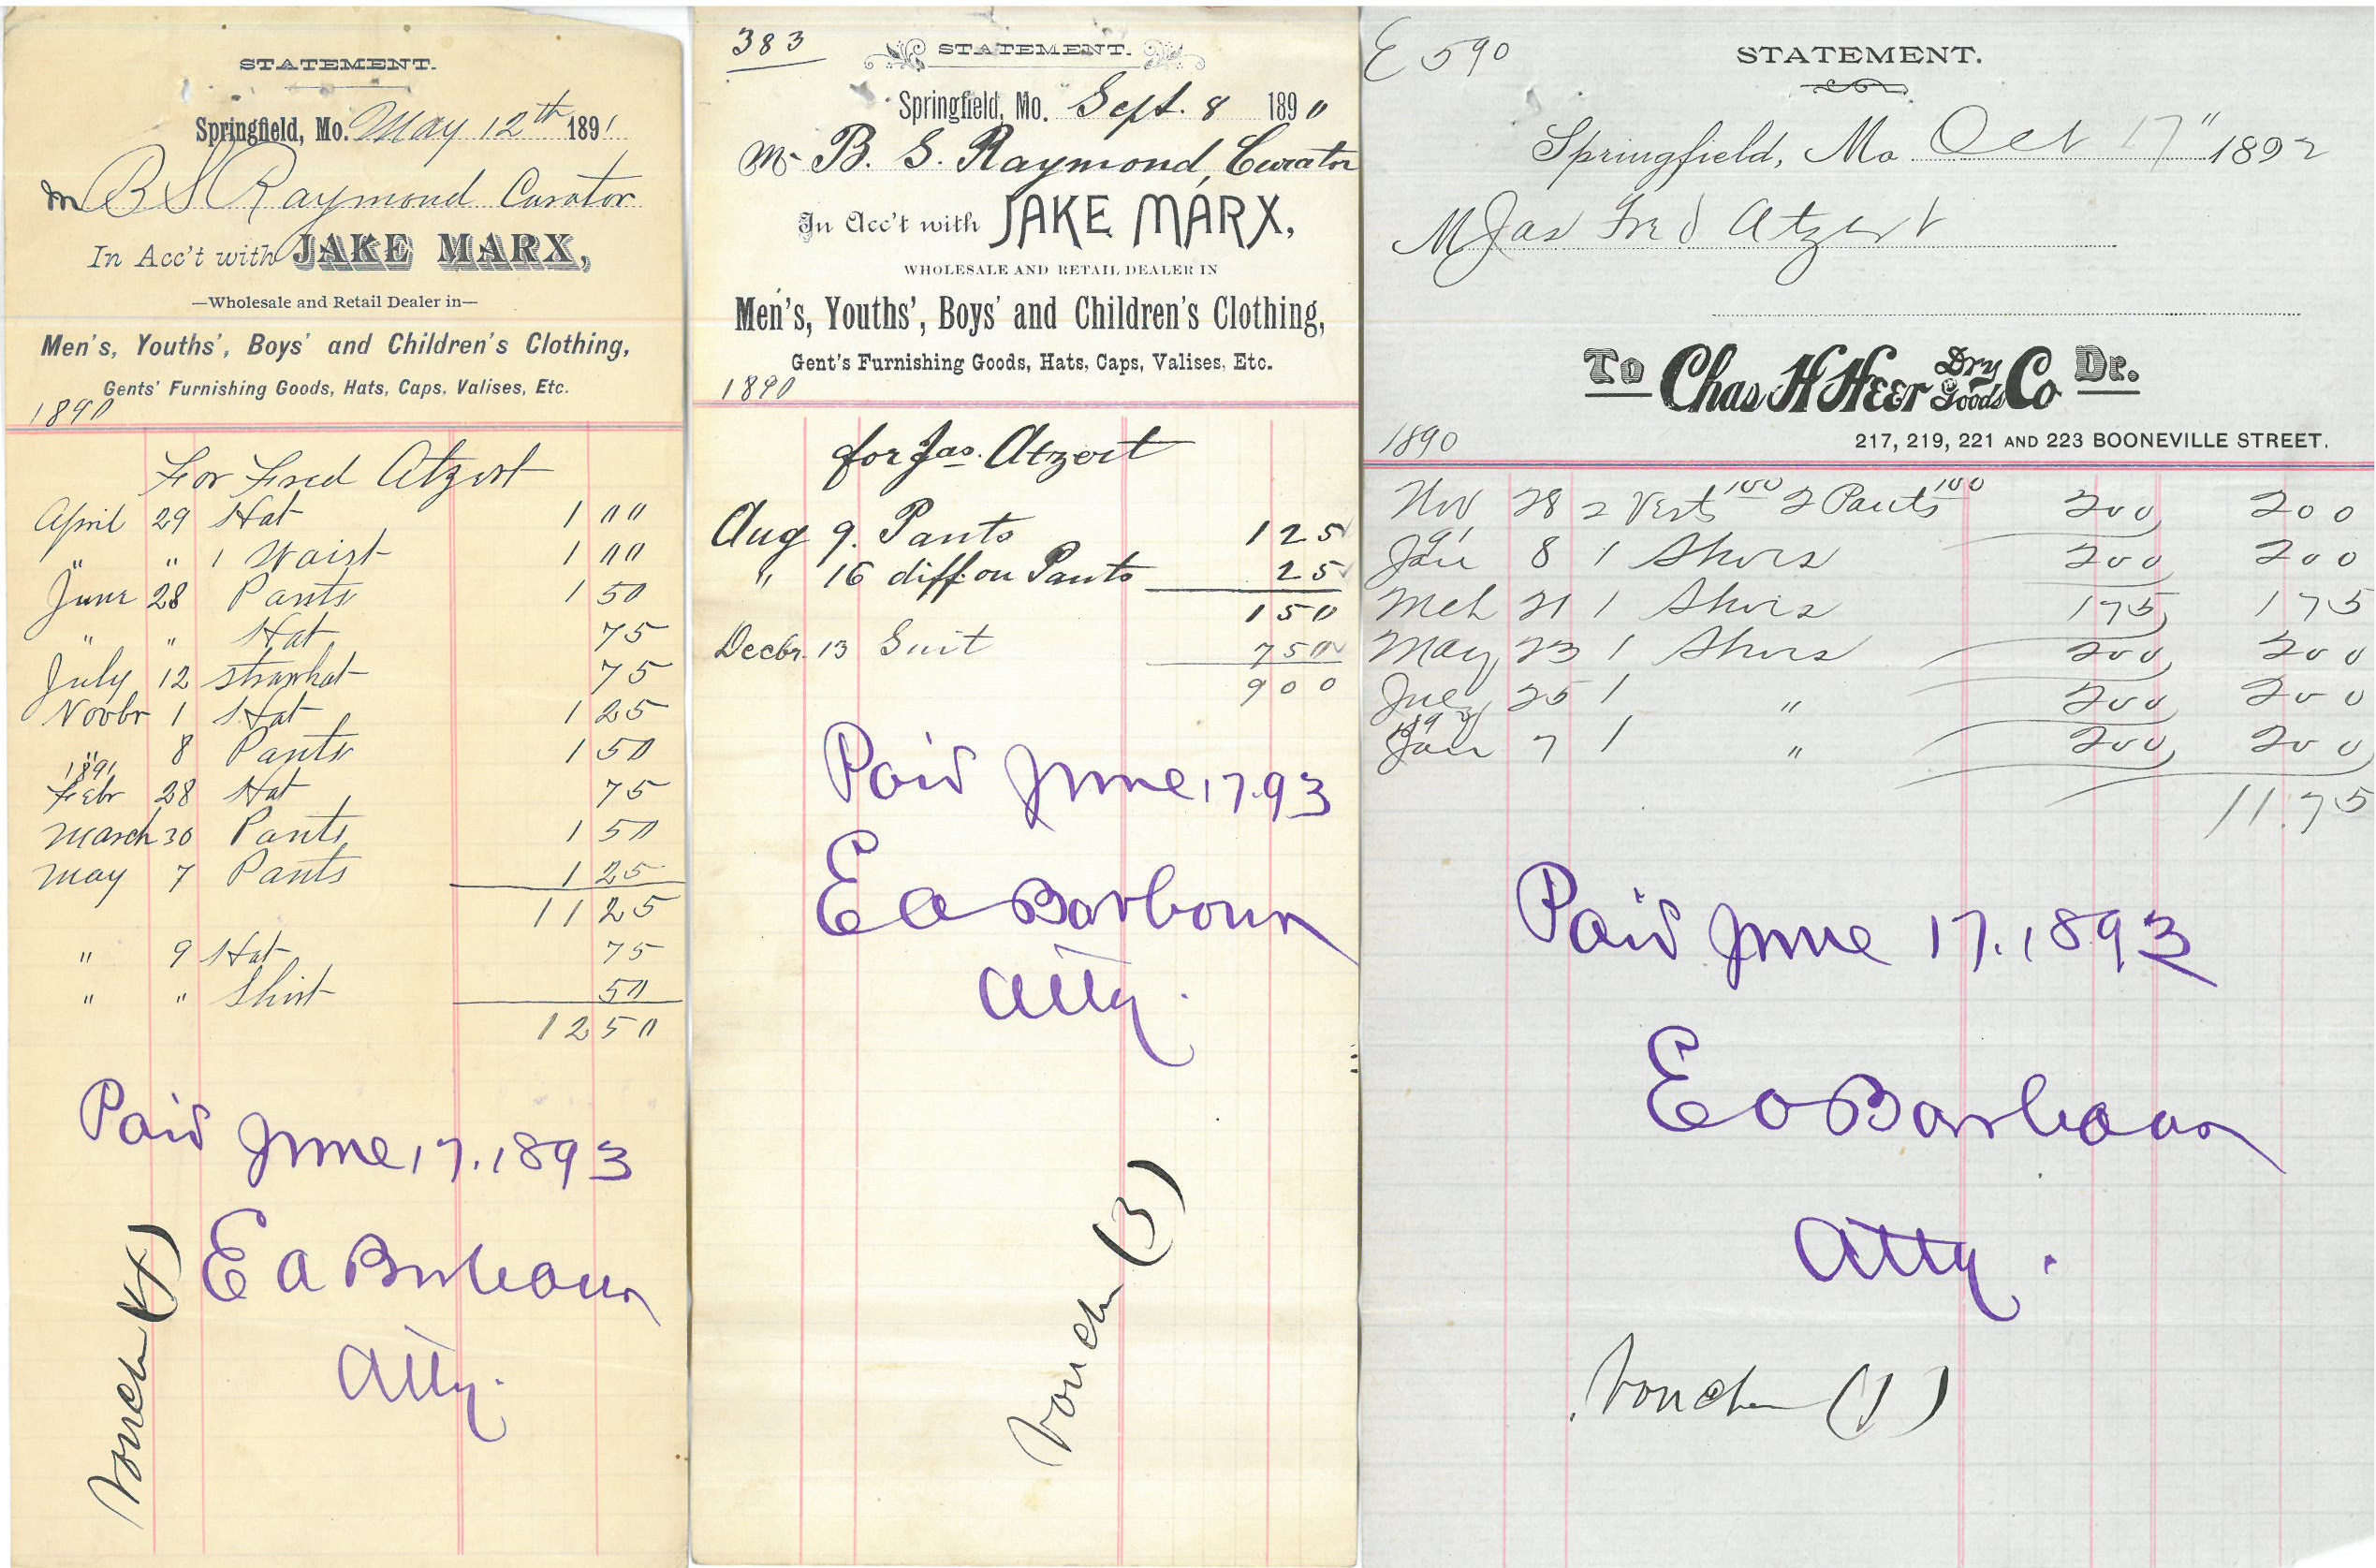 STATEMENT.
Springfield, Mo. May 12th 1891
M B S Raymond Curator
In Acc't with JAKE MARX,
—Wholesale and Retail Dealer in—
Men's, Youths', Boys' and Children's Clothing,
Gents' Furnishing Goods, Hats, Caps, Valises, Etc.
1890
For Fred Atzert
April 29 Hat 1 00
" " 1 Waist 1 00
June 28 Pants 1 50
" " Hat 75
July 12 strawhat 75
Novbr 1 Hat 1 25
" 8 Pants 1 50
1891
Febr 28 Hat 75
March 30 Pants 1 50
May 7 Pants 1 25
11 25
" 9 Hat 75
" " Shirt 50
12 50
Paid June 17. 1893
E A Barbour
Atty.
Vouch (4)
383
STATEMENT.
Springfield, Mo. Sept. 8 1890
Mr B. S. Raymond, Curator
In Acc't with JAKE MARX,
WHOLESALE AND RETAIL DEALER IN
Men's, Youths', Boys' and Children's Clothing,
Gent's Furnishing Goods, Hats, Caps, Valises, Etc.
1890
for Jas. Atzert
Aug 9. Pants 1 25
" 16 diff. on Pants 25
1 50
Decbr. 13 Suit 7 50
9 00
Paid June 17.93
E A Barbour
Atty.
Vouch (3)
E 590
STATEMENT.
Springfield, Mo Oct 17" 1892
M Jas Fred Atzert
To Chas H Heer Dry Goods Co Dr.
1890
217, 219, 221 AND 223 BOONEVILLE STREET.
Nov 28 2 Vests 100 2 Pants 100 200 200
91
Jan 8 1 Shoes 200 200
Mch 21 1 Shoes 175 175
May 23 1 Shoes 200 200
25 1 " 200 200
Jan 7 1 " 200 200
11.75
Paid June 17. 1893
E A Barbour
Atty.
Vouch (1)